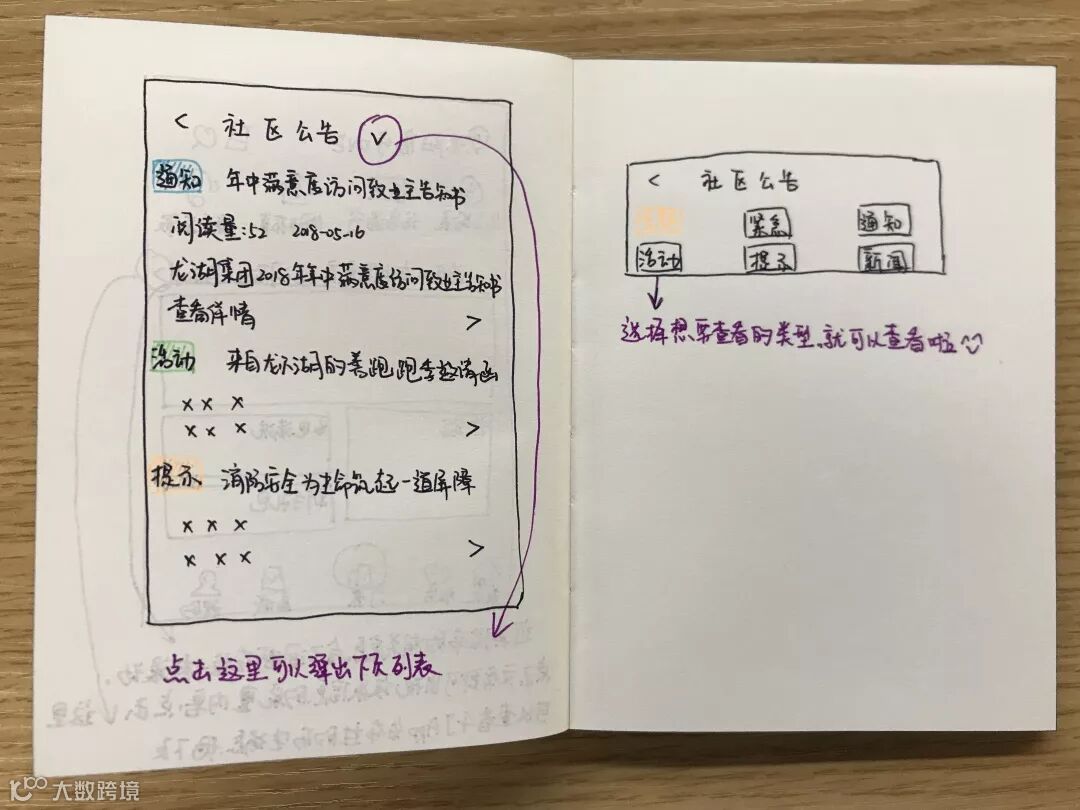 < 社区公告 ∨
通知 年中满意度访问致业主告知书
阅读量:52 2018-05-16
龙湖集团2018年年中满意度访问致业主告知书
查看详情 >
活动 来自龙湖的善跑跑季邀请函
x x x
x x x >
提示 消防安全为生命筑起一道屏障
x x x
x x x >
点击这里可以弹出下页列表
< 社区公告
紧急 通知
活动 提示 新闻
选择想要查看的类型,就可以查看啦
大数跨境